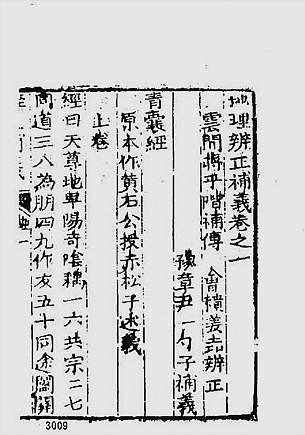 地理辨正補義卷之一
雲間蔣平階補傳　會稽姜垚辨正
豫章尹一勺子補義
青囊經
原本作黃石公授赤松子述義
上卷
經曰天尊地卑陽奇陰耦一六共宗二七
同道三八為朋四九作友五十同途闔闢
3009